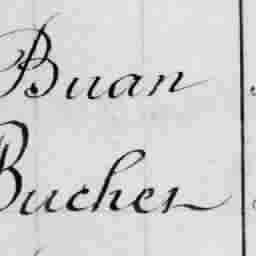 Buan
Bucher